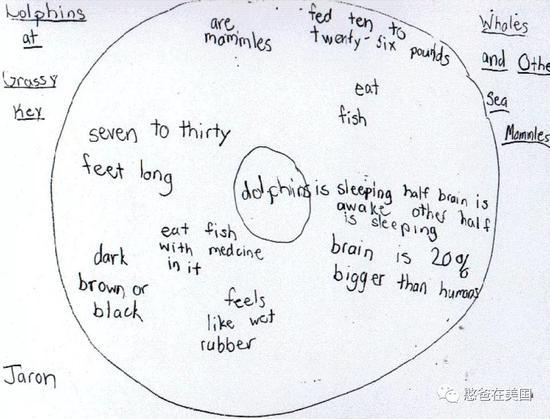 Dolphins
at
Grassy
Key
are
mammles
fed ten to
twenty-six pounds
Whales
and Othe
Sea
Mammles
eat
fish
seven to thirty
feet long
dolphins
is sleeping half brain is
awake other half
is sleeping
brain is 20%
bigger than humans
eat fish
with medcine
in it
dark
brown or
black
feels
like wet
rubber
Jaron
憨爸在美国